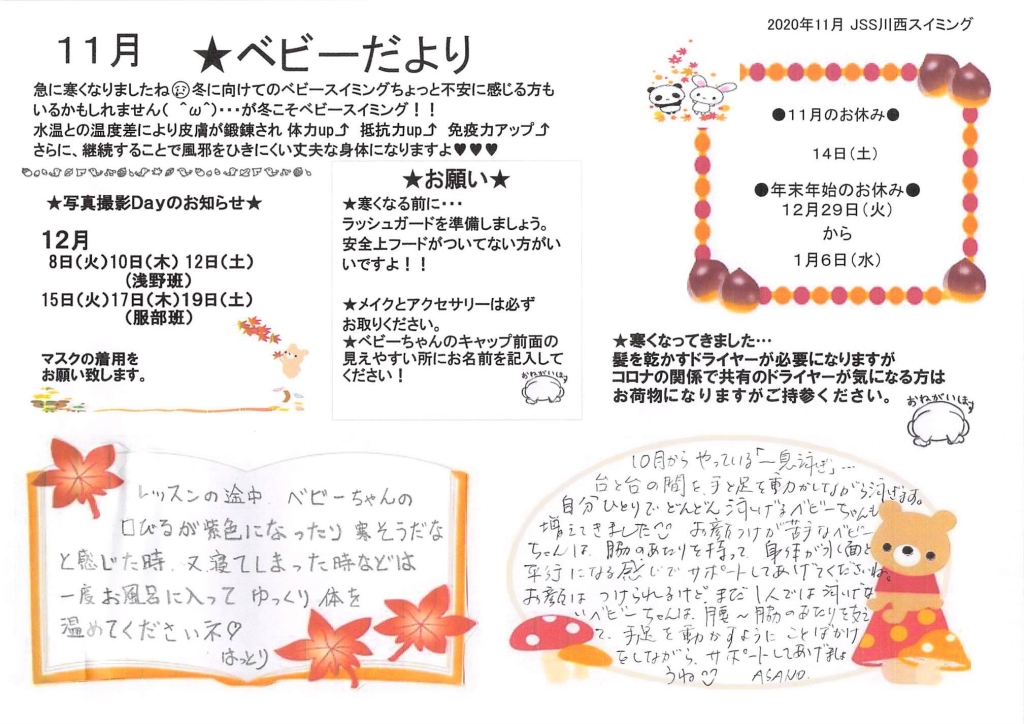 2020年11月 JSS川西スイミング
11月 ★ベビーだより
急に寒くなりましたね 冬に向けてのベビースイミングちょっと不安に感じる方も
いるかもしれません( ^ω^)・・・が冬こそベビースイミング！！
水温との温度差により皮膚が鍛錬され 体力up⤴ 抵抗力up⤴ 免疫力アップ⤴
さらに、継続することで風邪をひきにくい丈夫な身体になりますよ♥♥♥
★写真撮影Dayのお知らせ★
12月
8日(火)10日(木) 12日(土)
(浅野班)
15日(火)17日(木)19日(土)
(服部班)
マスクの着用を
お願い致します。
★お願い★
★寒くなる前に・・・
ラッシュガードを準備しましょう。
安全上フードがついてない方がい
いですよ！！
★メイクとアクセサリーは必ず
お取りください。
★ベビーちゃんのキャップ前面の
見えやすい所にお名前を記入して
ください！
おねがいします
●11月のお休み●
14日(土)
●年末年始のお休み●
12月29日(火)
から
1月6日(水)
★寒くなってきました…
髪を乾かすドライヤーが必要になりますが
コロナの関係で共有のドライヤーが気になる方は
お荷物になりますがご持参ください。
おねがいします
レッスンの途中、ベビーちゃんの
口びるが紫色になったり 寒そうだな
と感じた時、又寝てしまった時などは
一度お風呂に入って ゆっくり体を
温めてくださいネ♡
はっとり
10月からやっている「一息泳ぎ」…
台と台の間を、手と足を動かしながら泳ぎます。
自分ひとりで どんどん泳げるベビーちゃんも
増えてきました お顔つけが苦手なベビー
ちゃんは、脇のあたりを持って、身体が水面と
平行になる感じでサポートしてあげてくださいね。
お顔は つけられるけど まだ1人では泳げな
いベビーちゃんは、腰～脇のあたりを支え
て、手足を動かすように ことばかけ
をしながら、サポートしてあげましょ
うね ASANO.